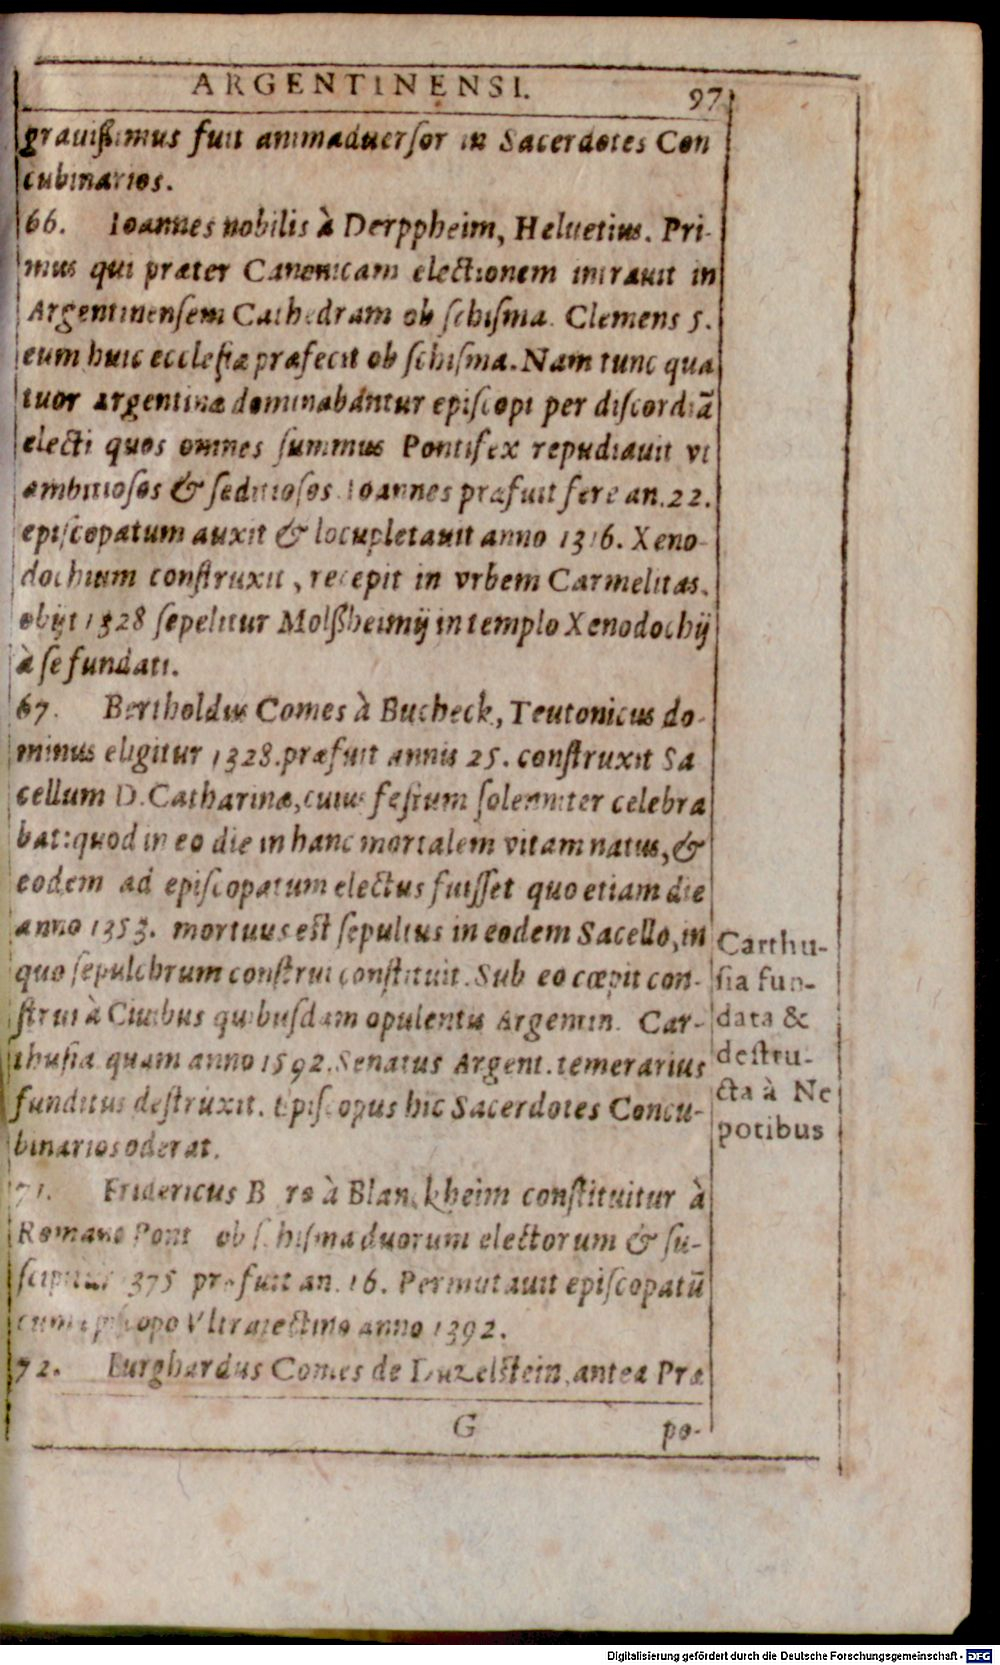 ARGENTINENSI. 97
grauiſsimus fuit animaduerſor in Sacerdotes Con
cubinarios.
66. Ioannes nobilis à Derppheim, Heluetius. Pri-
mus qui præter Canonicam electionem intrauit in
Argentinenſem Cathedram ob ſchiſma. Clemens 5.
eum huic eccleſiæ præfecit ob ſchiſma. Nam tunc qua
tuor argentinæ dominabantur epiſcopi per diſcordiã
electi quos omnes ſummus Pontifex repudiauit vt
ambitioſos & ſeditioſos. Ioannes præfuit fere an. 22.
epiſcopatum auxit & locupletauit anno 1316. Xeno-
dochium conſtruxit, recepit in vrbem Carmelitas.
obijt 1328 ſepelitur Molßheimij in templo Xenodochij
à ſe fundati.
67. Bertholdus Comes à Bucheck, Teutonicus do-
minus eligitur 1328. præfuit annis 25. conſtruxit Sa
cellum D. Catharinæ, cuius feſtum ſolenniter celebra
bat: quod in eo die in hanc mortalem vitam natus, &
eodem ad epiſcopatum electus fuiſſet quo etiam die
anno 1353. mortuus est ſepultus in eodem Sacello, in
quo ſepulchrum conſtrui conſtituit. Sub eo cœpit con-
ſtrui à Ciuibus quibuſdam opulentis Argentin. Car-
thuſia quam anno 1592. Senatus Argent. temerarius
funditus deſtruxit. Epiſcopus hic Sacerdotes Concu-
binarios oderat.
Carthu-
ſia fun-
data &
deſtru-
cta à Ne
potibus
71. Fridericus B ro à Blanckheim conſtituitur à
Romano Pont ob ſchiſma duorum electorum & ſu-
ſcipitur 1375 præfuit an. 16. Permutauit epiſcopatũ
cum epiſcopo Vltraiectino anno 1392.
72. Burghardus Comes de Luzelstein, antea Præ
G po-
Digitalisierung gefördert durch die Deutsche Forschungsgemeinschaft - DFG